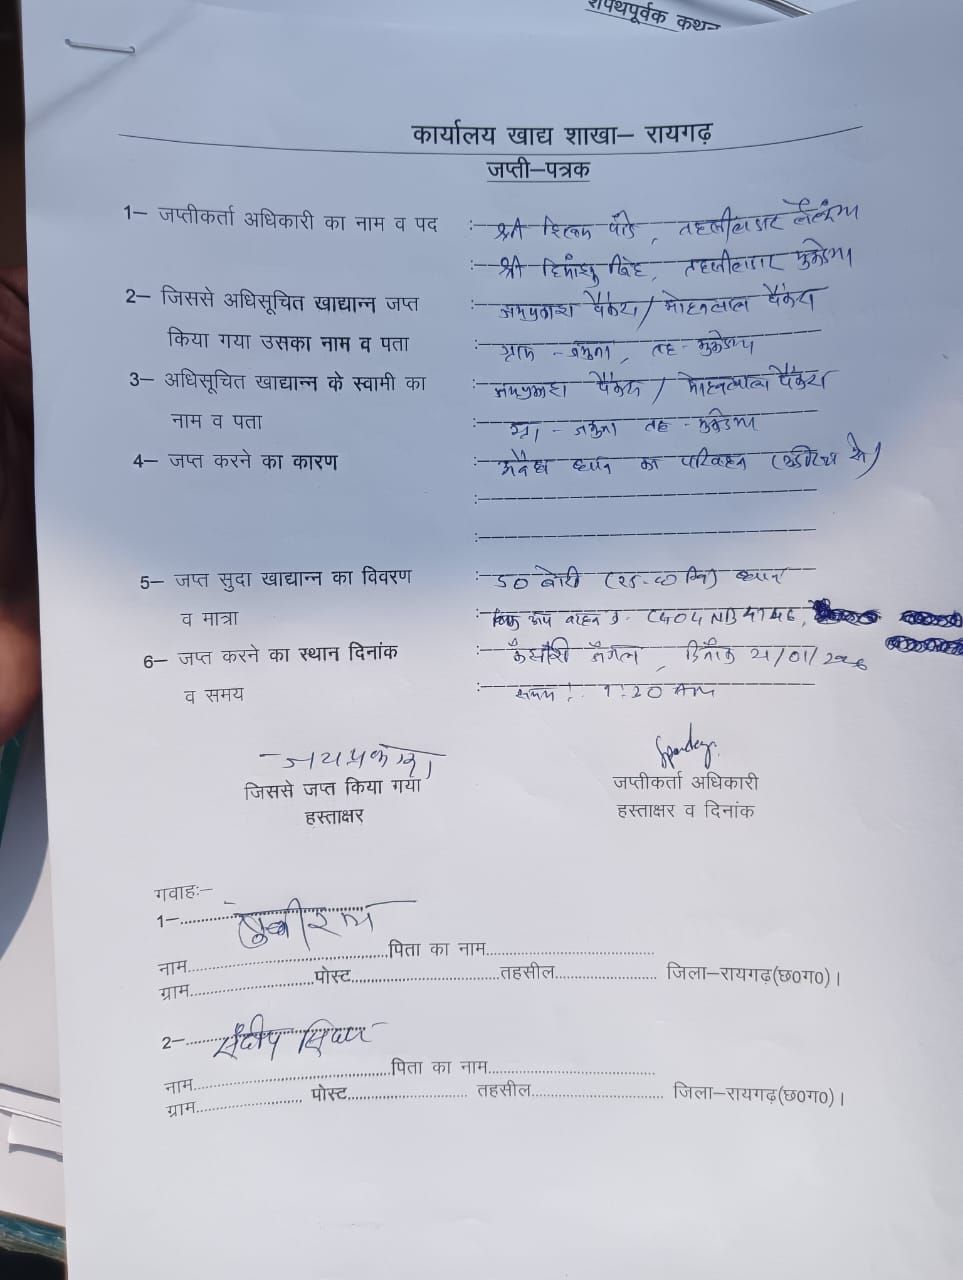 शपथपूर्वक कथन
कार्यालय खाद्य शाखा– रायगढ़
जप्ती–पत्रक
1– जप्तीकर्ता अधिकारी का नाम व पद :- श्री पाँडे, तहसीलदार लैलूंगा
:- श्री हिमांशु तहसीलदार मुकडेगा
2– जिससे अधिसूचित खाद्यान्न जप्त :- जयप्रकाश पैंकरा / मोहनलाल पैंकरा
किया गया उसका नाम व पता ग्राम - जमुना, तह - मुकडेगा
3– अधिसूचित खाद्यान्न के स्वामी का :- जयप्रकाश पैंकरा / मोहनलाल पैंकरा
नाम व पता :- ग्रा - जमुना तह - मुकडेगा
4– जप्त करने का कारण :- अवैध धान का परिवहन
:-
:-
5– जप्त सुदा खाद्यान्न का विवरण :- 50 बोरी धान
व मात्रा :- वाहन
6– जप्त करने का स्थान दिनांक :- जंगल, दिनाँक 21/01/2026
व समय :- समय : 1:20 AM
जयप्रकाश
जिससे जप्त किया गया जप्तीकर्ता अधिकारी
हस्ताक्षर हस्ताक्षर व दिनांक
गवाहः–
1–
नाम पिता का नाम
ग्राम पोस्ट तहसील जिला–रायगढ़(छ0ग0)।
2– संदीप सिदार
नाम पिता का नाम
ग्राम पोस्ट तहसील जिला–रायगढ़(छ0ग0)।